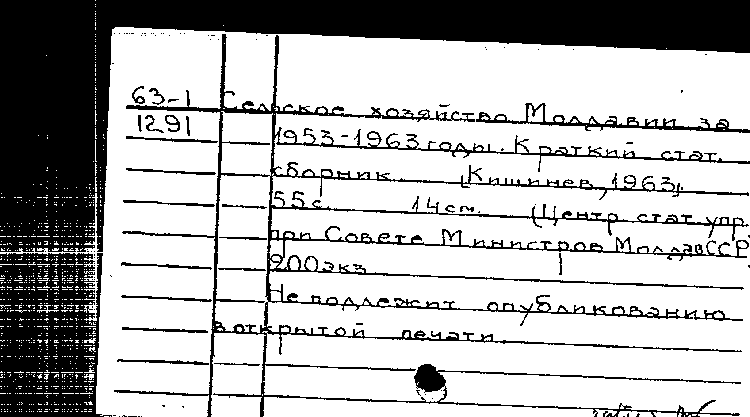 63-1 Сельское хозяйство Молдавии за
1291 1953-1963 годы. Краткий стат.
сборник. [Кишинев, 1963].
55 с. 14 см. (Центр стат упр.
при Совете Министров МолдавССР)
200 экз
Не подлежит опубликованию
в открытой печати.